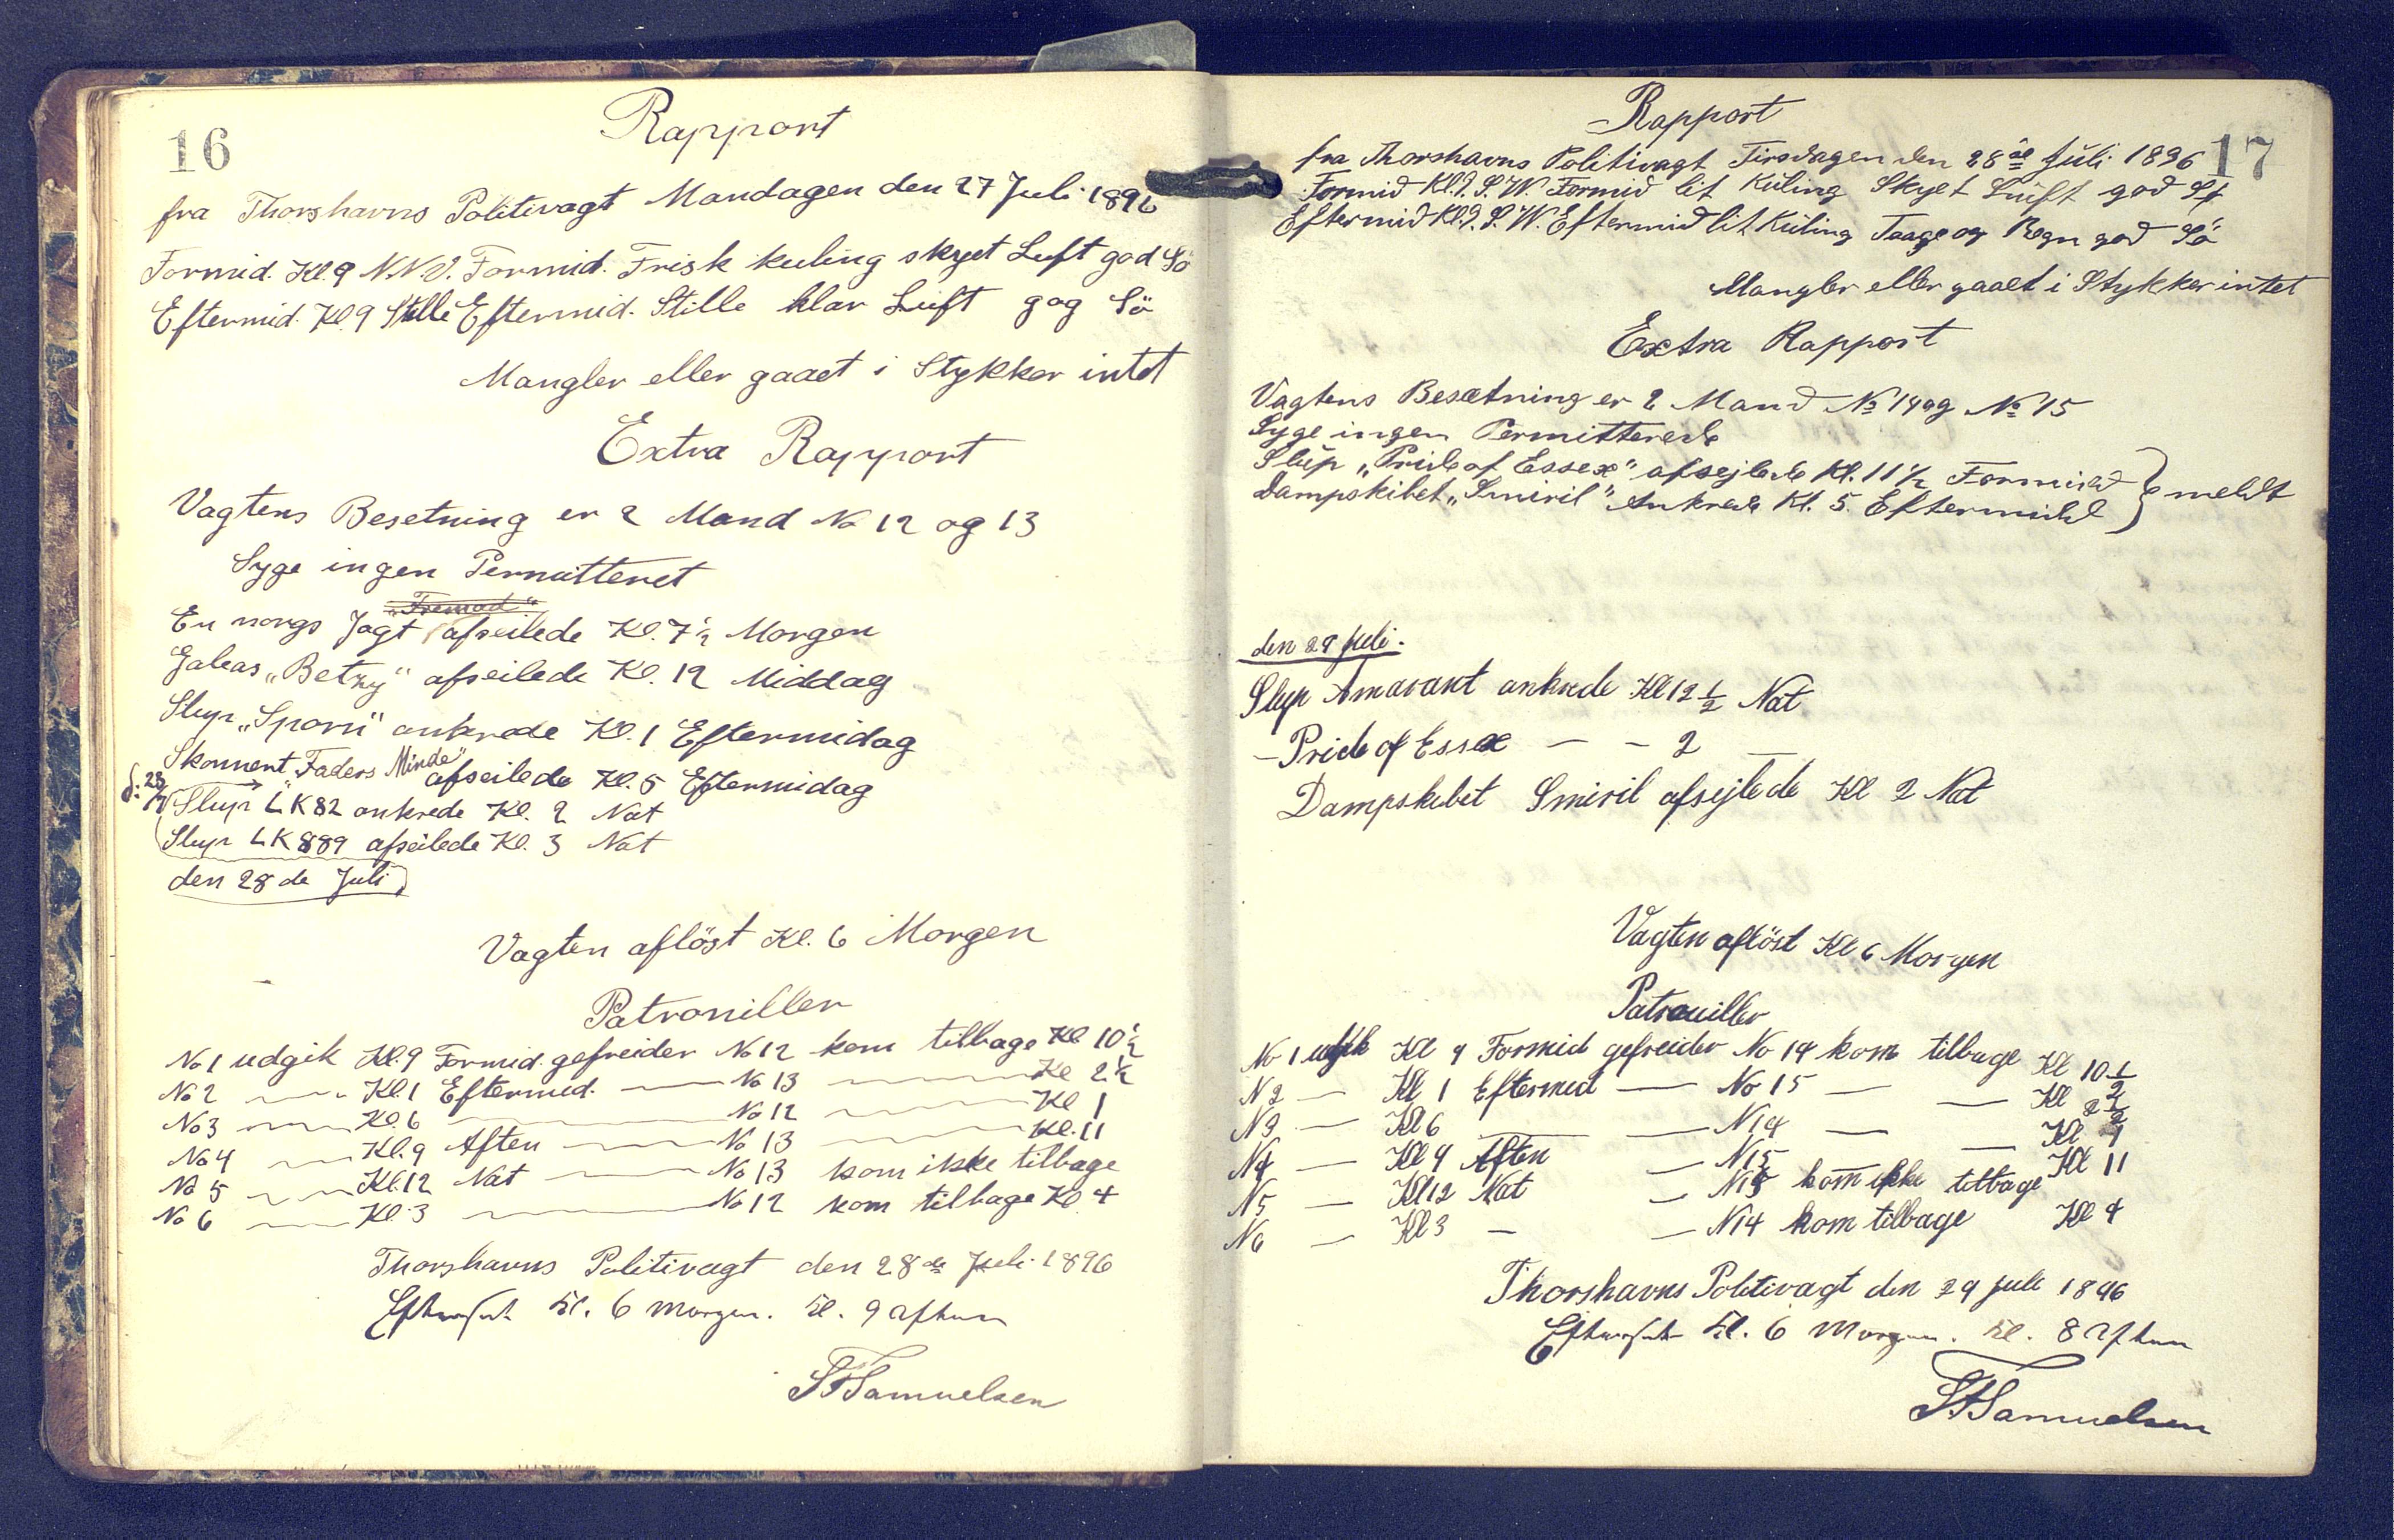 16
Rapport
fra Thorshavns Politivagt Mandagen den 27 Juli 1896
Formid. Kl. 9 N.N.V. Formid. Frisk kuling skyet Luft god Sö
Eftermid. Kl. 9 Stille Eftermid. Stille klar Luft gog Sö
Mangler eller gaaet i Stykker intet
Extra Rapport
Vagtens Besetning er 2 Mand No 12 og 13
Syge ingen Permitteret
"Fremad"
En norgs Jagt afseilede Kl. 7 1/2 Morgen
Galeas "Betzy" afseilede Kl. 12 Middag
Slup "Sporn" ankrede Kl. 1 Eftermidag
Skonnent "Faders Minde" afseilede Kl. 5 Eftermidag
d: 28/7 Slup LK 82 ankrede Kl. 2 Nat
Slup LK 889 afseilede Kl. 3 Nat
den 28 de Juli
Vagten aflöst Kl. 6 Morgen
Patrouiller
No 1 udgik Kl. 9 Formid. gefreider No 12 kom tilbage Kl 10 1/2
No 2 — Kl. 1 Eftermid. — No 13 — Kl 2 1/2
No 3 — Kl. 6 — No 12 — Kl 1
No 4 — Kl. 9 Aften — No 13 — Kl. 11
No 5 — Kl. 12 Nat — No 13 kom ikke tilbage
No 6 — Kl. 3 — No 12 kom tilbage Kl. 4
Thorshavns Politivagt den 28 de Juli 1896
Kl. 6 Morgen. Kl. 9 Aften
S.F. Samuelsen
17
Rapport
fra Thorshavns Politivagt Tirsdagen den 28 de Juli 1896
Formid Kl. 9. S.W. Formid lit Kuling Skyet Luift god Sö
Eftermid Kl. 9. S.W. Eftermid lit Kuling Taage og Regn god Sö
Mangler eller gaaet i Stykker intet
Extra Rapport
Vagtens Besætning er 2 Mand No 14 og No 15
Syge ingen Permitterede
Slup "Pride of Essex" afsejlede Kl. 11 1/2 Formidd } meldt
Dampskibet "Smiril" Ankrede Kl. 5. Eftermidd
den 29 Juli.
Slup Amarant ankrede Kl 12 1/2 Nat
— Pride of Essex — — 2 —
Dampskibet Smiril afsejlede Kl 2 Nat
Vagten aflöst Kl 6 Morgen
Patrouiller
No 1 udgik Kl 9 Formid gefreider No 14 kom tilbage Kl 10 1/2
N 2 — Kl 1 Eftermid — No 15 — — Kl 2 1/2
N 3 — Kl 6 — — N 14 — — Kl 7
N 4 — Kl 9 Aften — N 15 — Kl 11
N 5 — Kl 12 Nat — N 15 kom ikke tilbage
N 6 — Kl 3 — — N 14 kom tilbage Kl 4
Thorshavns Politivagt den 29 Juli 1896
Kl. 6 Morgen. Kl. 8 Aften
S.F. Samuelsen